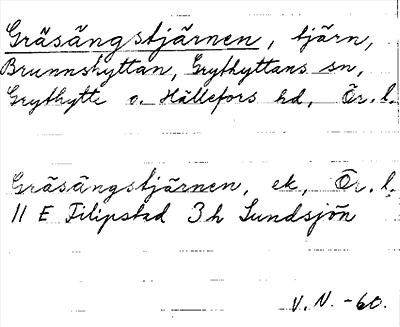 Gräsängstjärnen, tjärn,
Brunnshyttan, Grythyttans sn,
Grythytte o. Hällefors hd, Ör. l.
Gräsängstjärnen, ek, Ör. l.
11 E Filipstad 3h Sundsjön
V. N. -60.